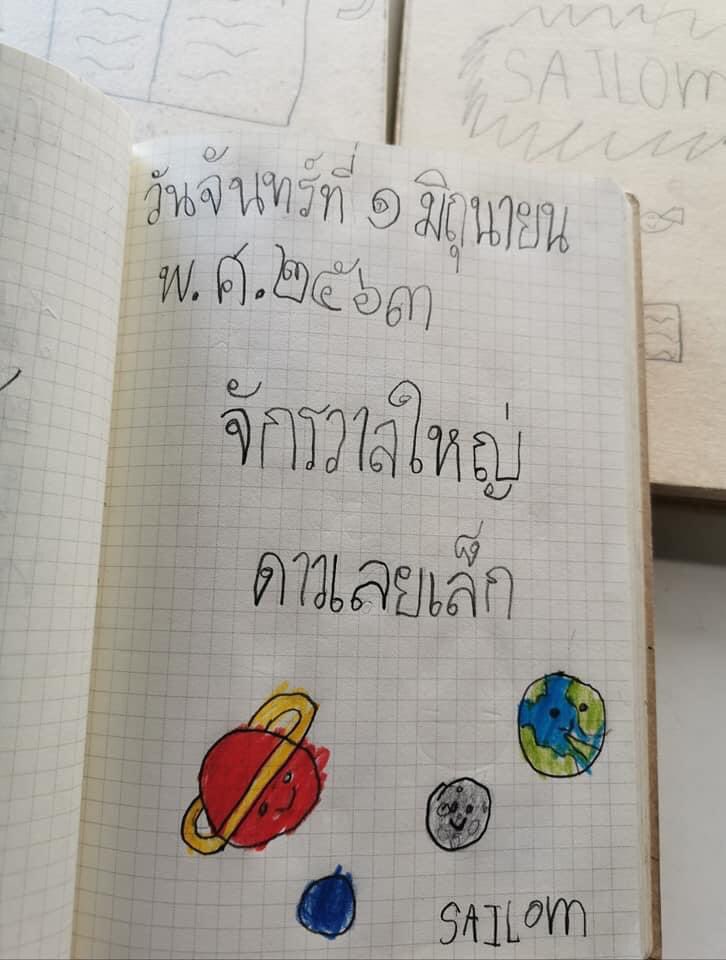 SAILOM
วันจันทร์ที่ ๑ มิถุนายน
พ.ศ.๒๕๖๓
จักรวาลใหญ่
ดาวเลยเล็ก
SAILOM